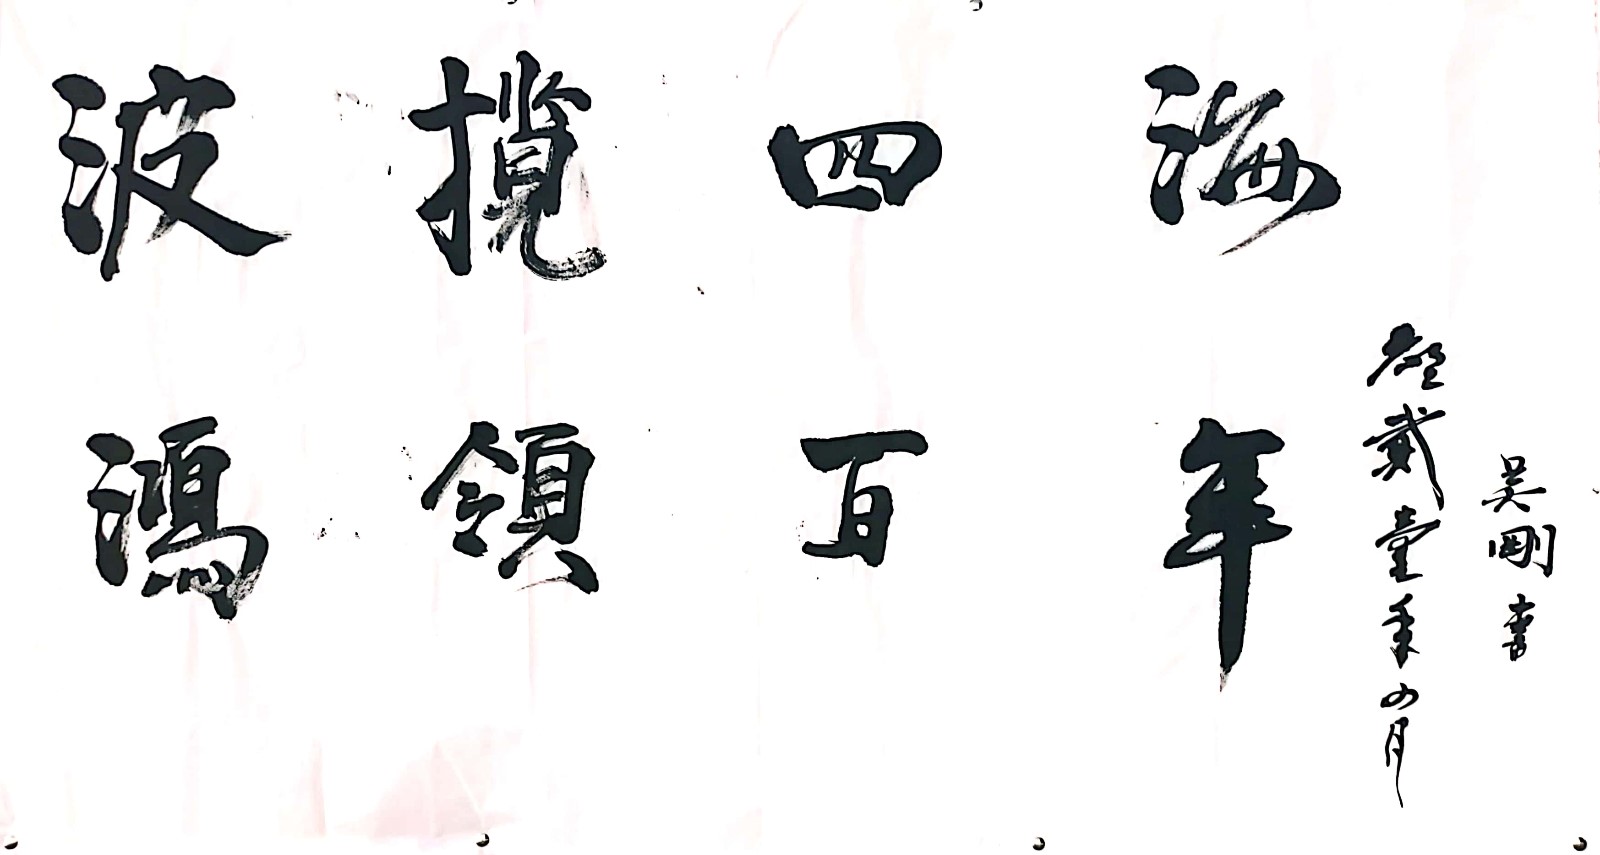 波攬四海
鴻領百年
貳壹年四月
吴剛書